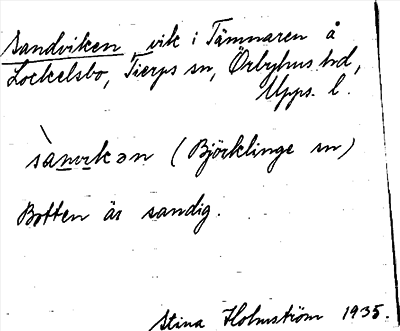 Sandviken, vik i Tämnaren å
Lockelsbo, Tierps sn, Örbyhus hd,
Upps. l.
sànvikən (Björklinge sn)
Botten är sandig.
Stina Holmström 1935.